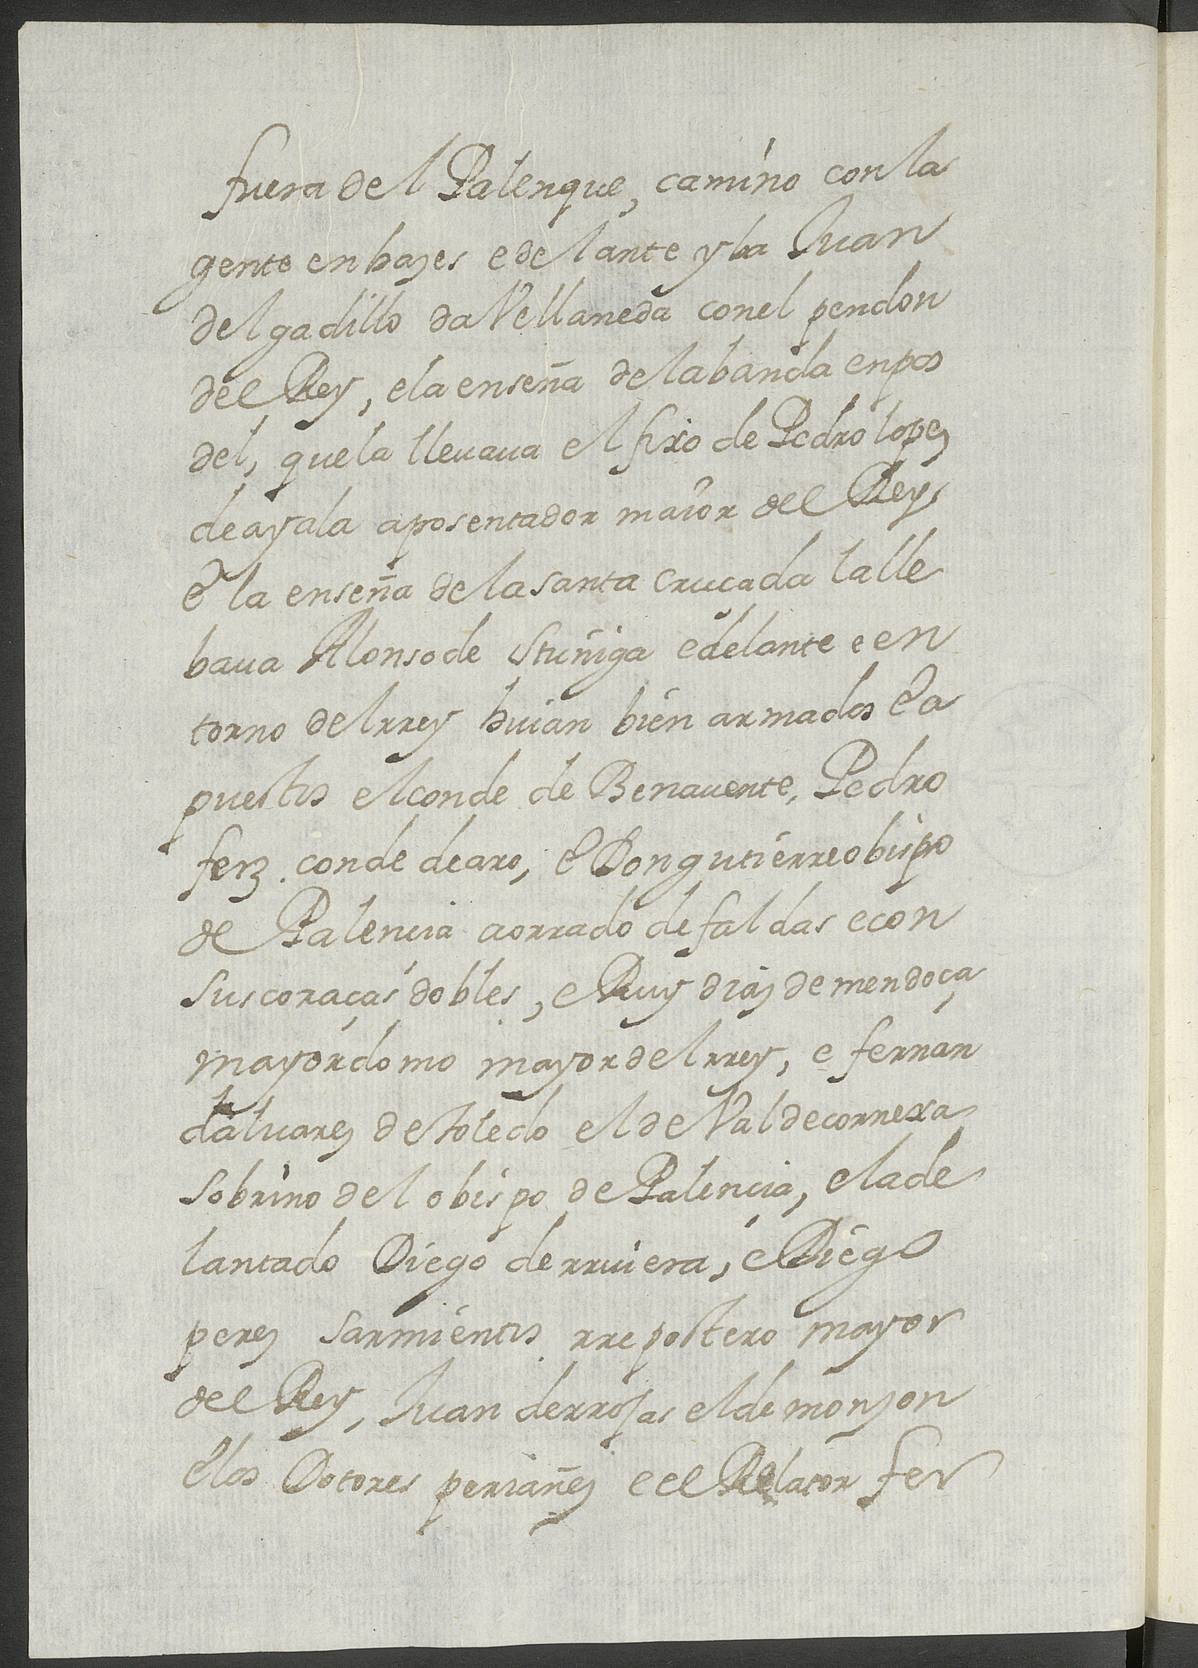 fuera del Palenque, camino con la
gente en hazes e delante yba Juan
delgadillo daVellaneda con el pendon
del Rey, e la enseña de la banda enpos
del, que la lleuaua el fixo de Pedro lopez
de ayala aposentador maior del Rey,
e la enseña de la santa crucada lalle
baua Alonso de Stuñiga e delante e en
torno del rrey huian bien armados e a
puestos el conde de Benauente, Pedro
ferz. conde de aro, e Don gutierre obispo
de Palencia aorrado de faldas e con
sus coraças dobles, e Ruy diaz de mendoça
mayordomo mayor del rrey, e fernan
daluarez de toledo el de Valdecornexa
sobrino del obispo de Palencia, el ade
lantado Diego de rriuiera, e Diego
perez sarmientos rrepostero mayor
del Rey, Juan de rrojas el de monzon
e los Dotores periañez e el Relator fer